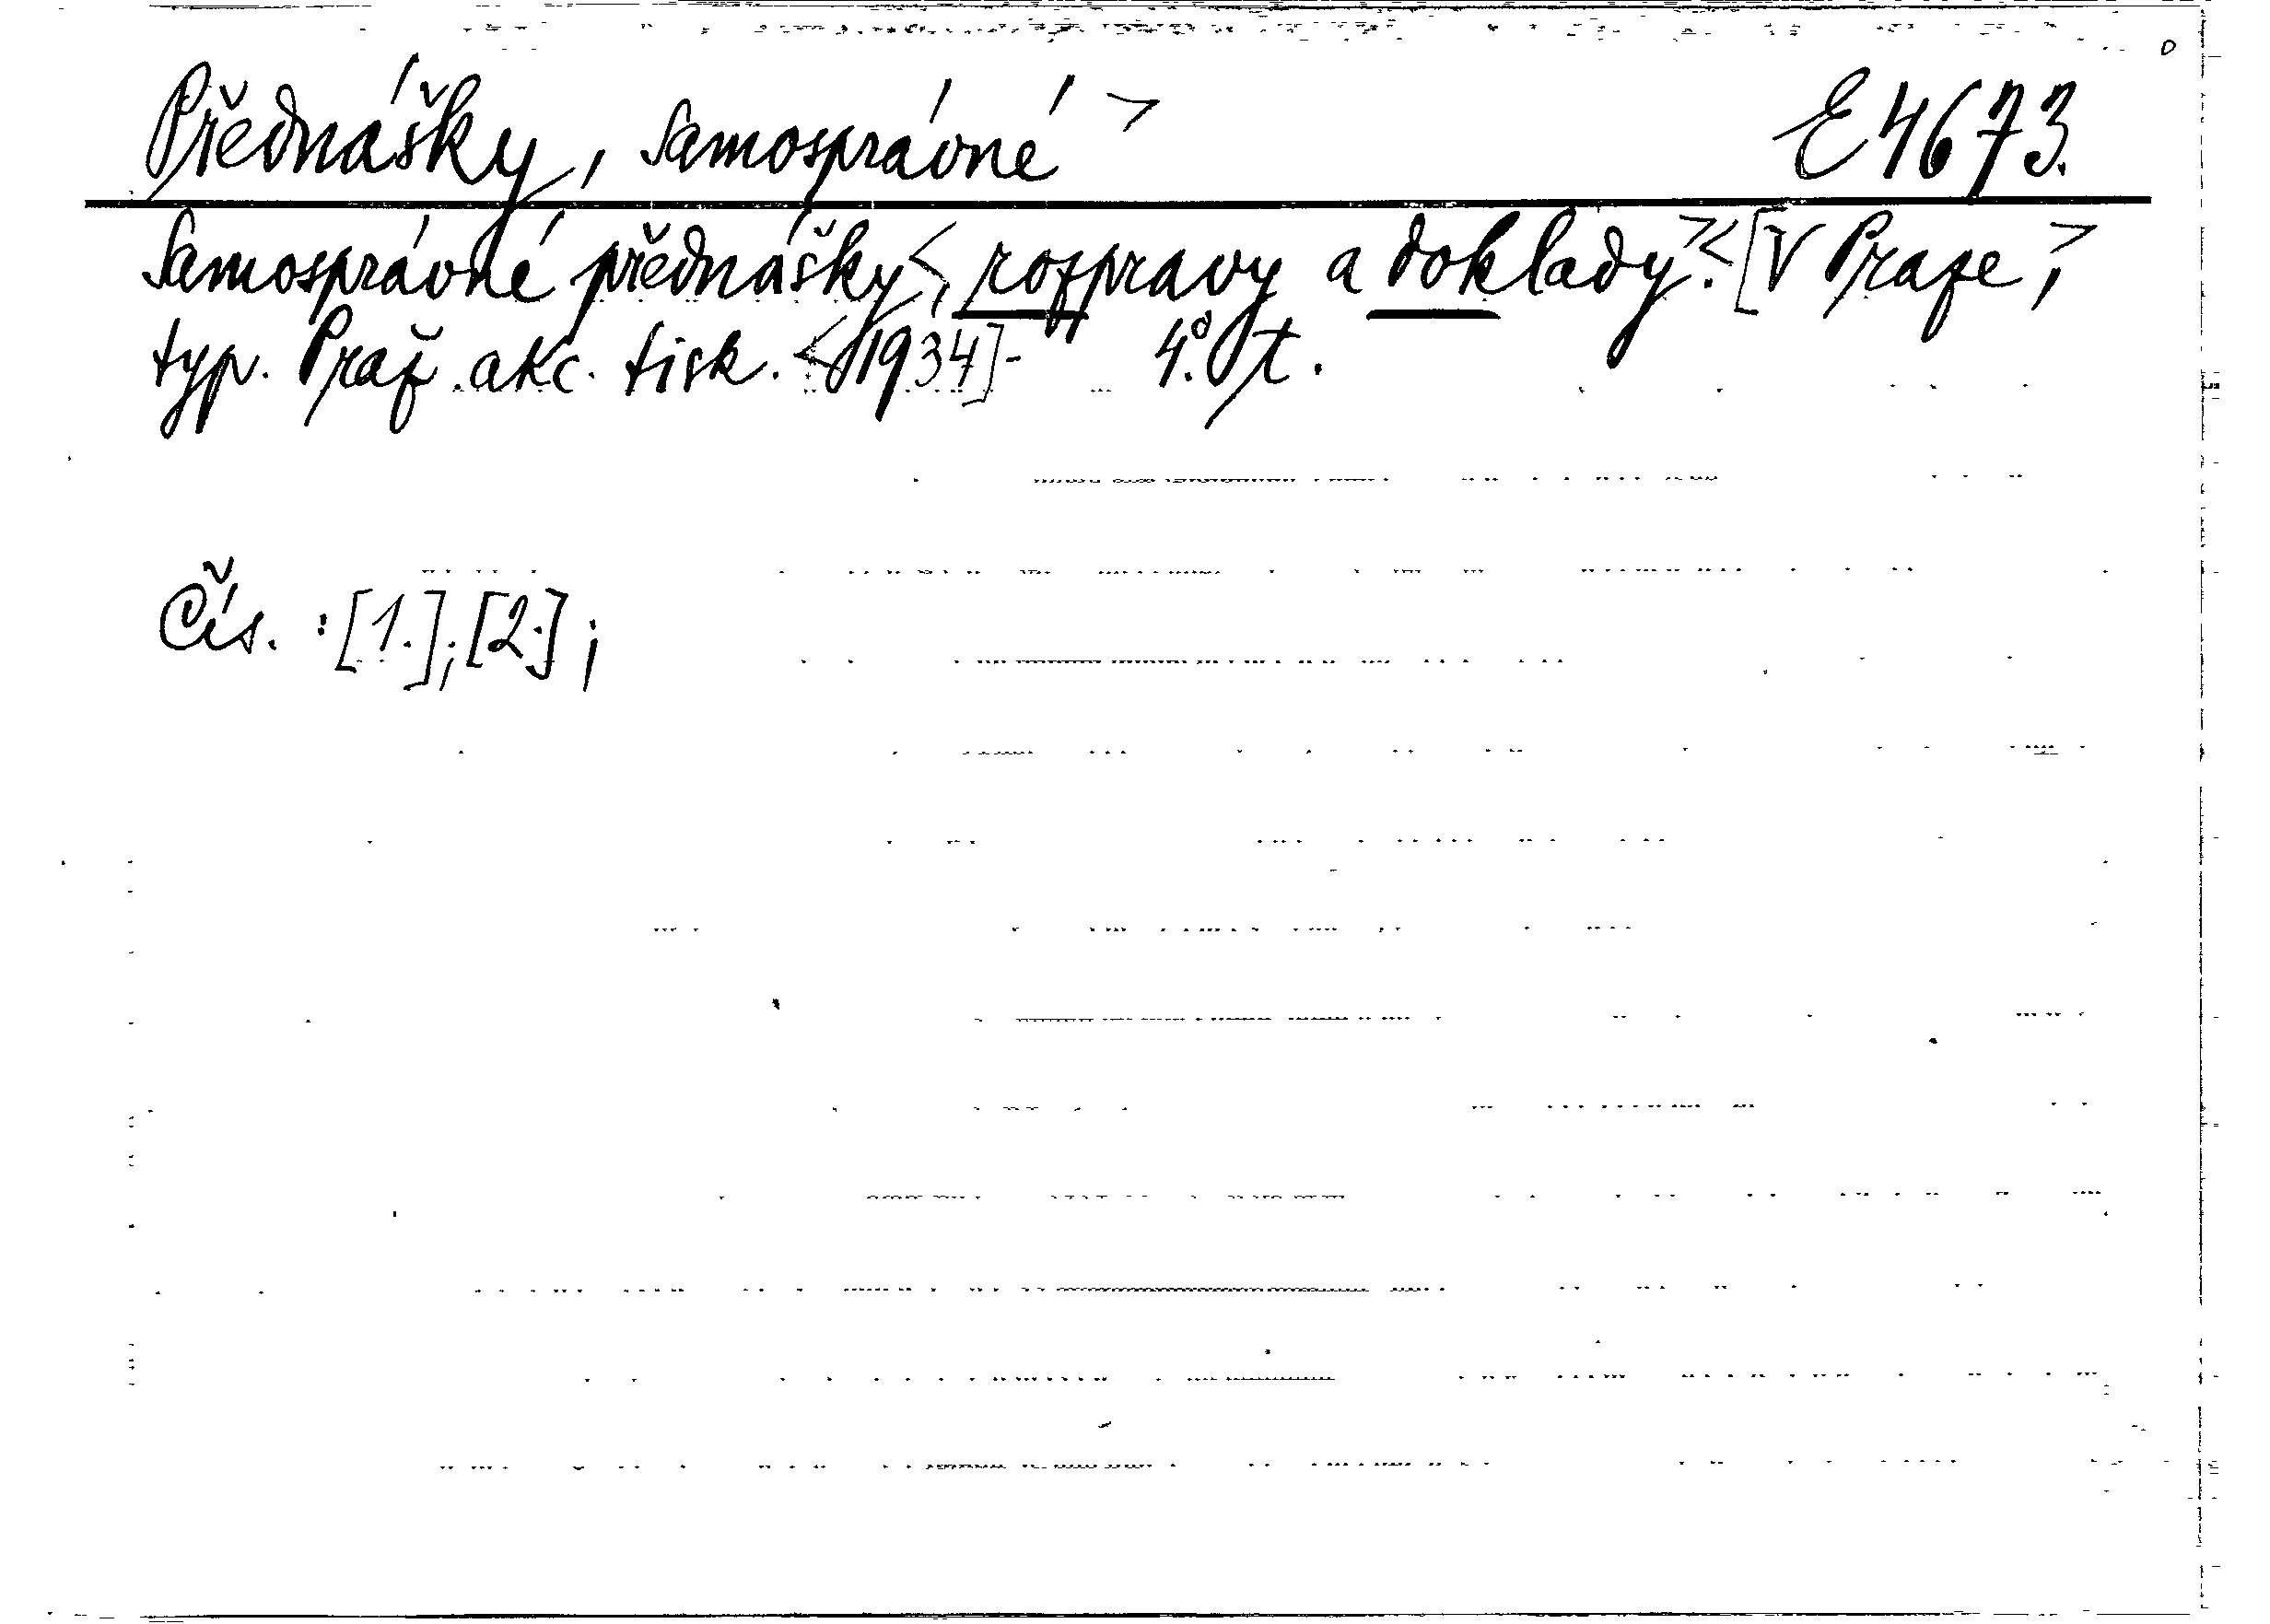 Přednášky, samosprávné > E 4673.
Samosprávné přednášky <, rozpravy a doklady.> < [V Praze,>
typ. Praž. akc. tisk. < 1934]- 4°. t.
Čís. : [1.]; [2.];